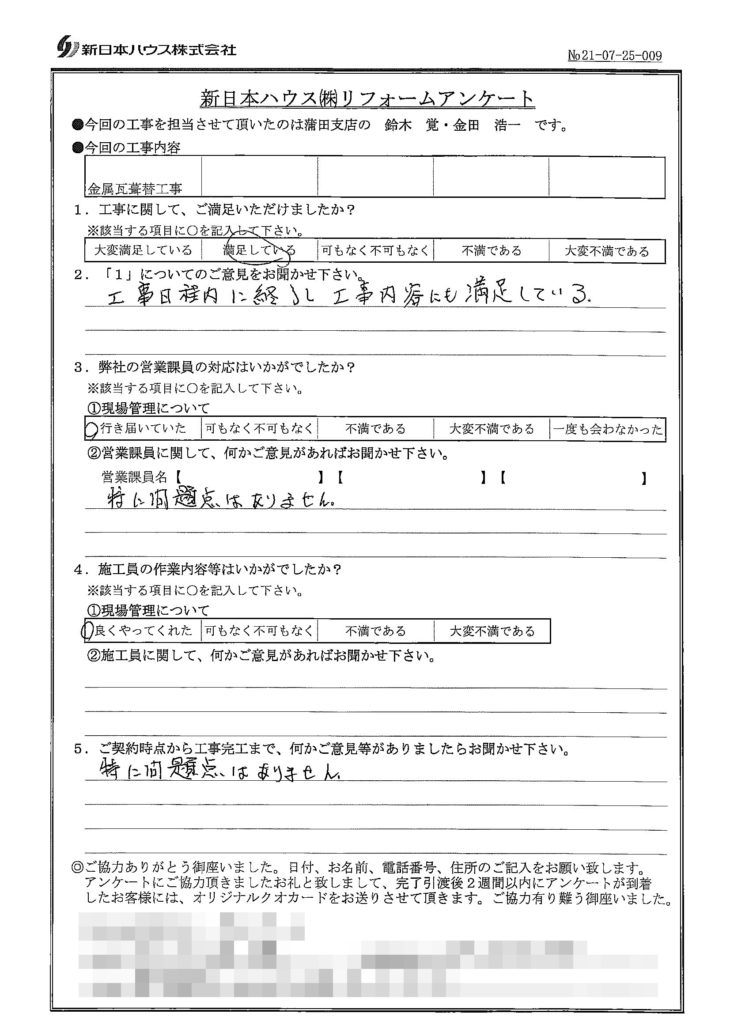 新日本ハウス株式会社
№21-07-25-009
新日本ハウス㈱リフォームアンケート
●今回の工事を担当させて頂いたのは蒲田支店の 鈴木 覚・金田 浩一 です。
●今回の工事内容
金属瓦葺替工事
1．工事に関して、ご満足いただけましたか？
※該当する項目に○を記入して下さい。
大変満足している 満足している 可もなく不可もなく 不満である 大変不満である
2．「1」についてのご意見をお聞かせ下さい。
工事日程内に終了し工事内容にも満足している.
3．弊社の営業課員の対応はいかがでしたか？
※該当する項目に○を記入して下さい。
①現場管理について
行き届いていた 可もなく不可もなく 不満である 大変不満である 一度も会わなかった
②営業課員に関して、何かご意見があればお聞かせ下さい。
営業課員名【 】【 】【 】
特に問題点はありません.
4．施工員の作業内容等はいかがでしたか？
※該当する項目に○を記入して下さい。
①現場管理について
良くやってくれた 可もなく不可もなく 不満である 大変不満である
②施工員に関して、何かご意見があればお聞かせ下さい。
5．ご契約時点から工事完工まで、何かご意見等がありましたらお聞かせ下さい。
特に問題点はありません.
◎ご協力ありがとう御座いました。日付、お名前、電話番号、住所のご記入をお願い致します。
アンケートにご協力頂きましたお礼と致しまして、完了引渡後２週間以内にアンケートが到着
したお客様には、オリジナルクオカードをお送りさせて頂きます。ご協力有り難う御座いました。